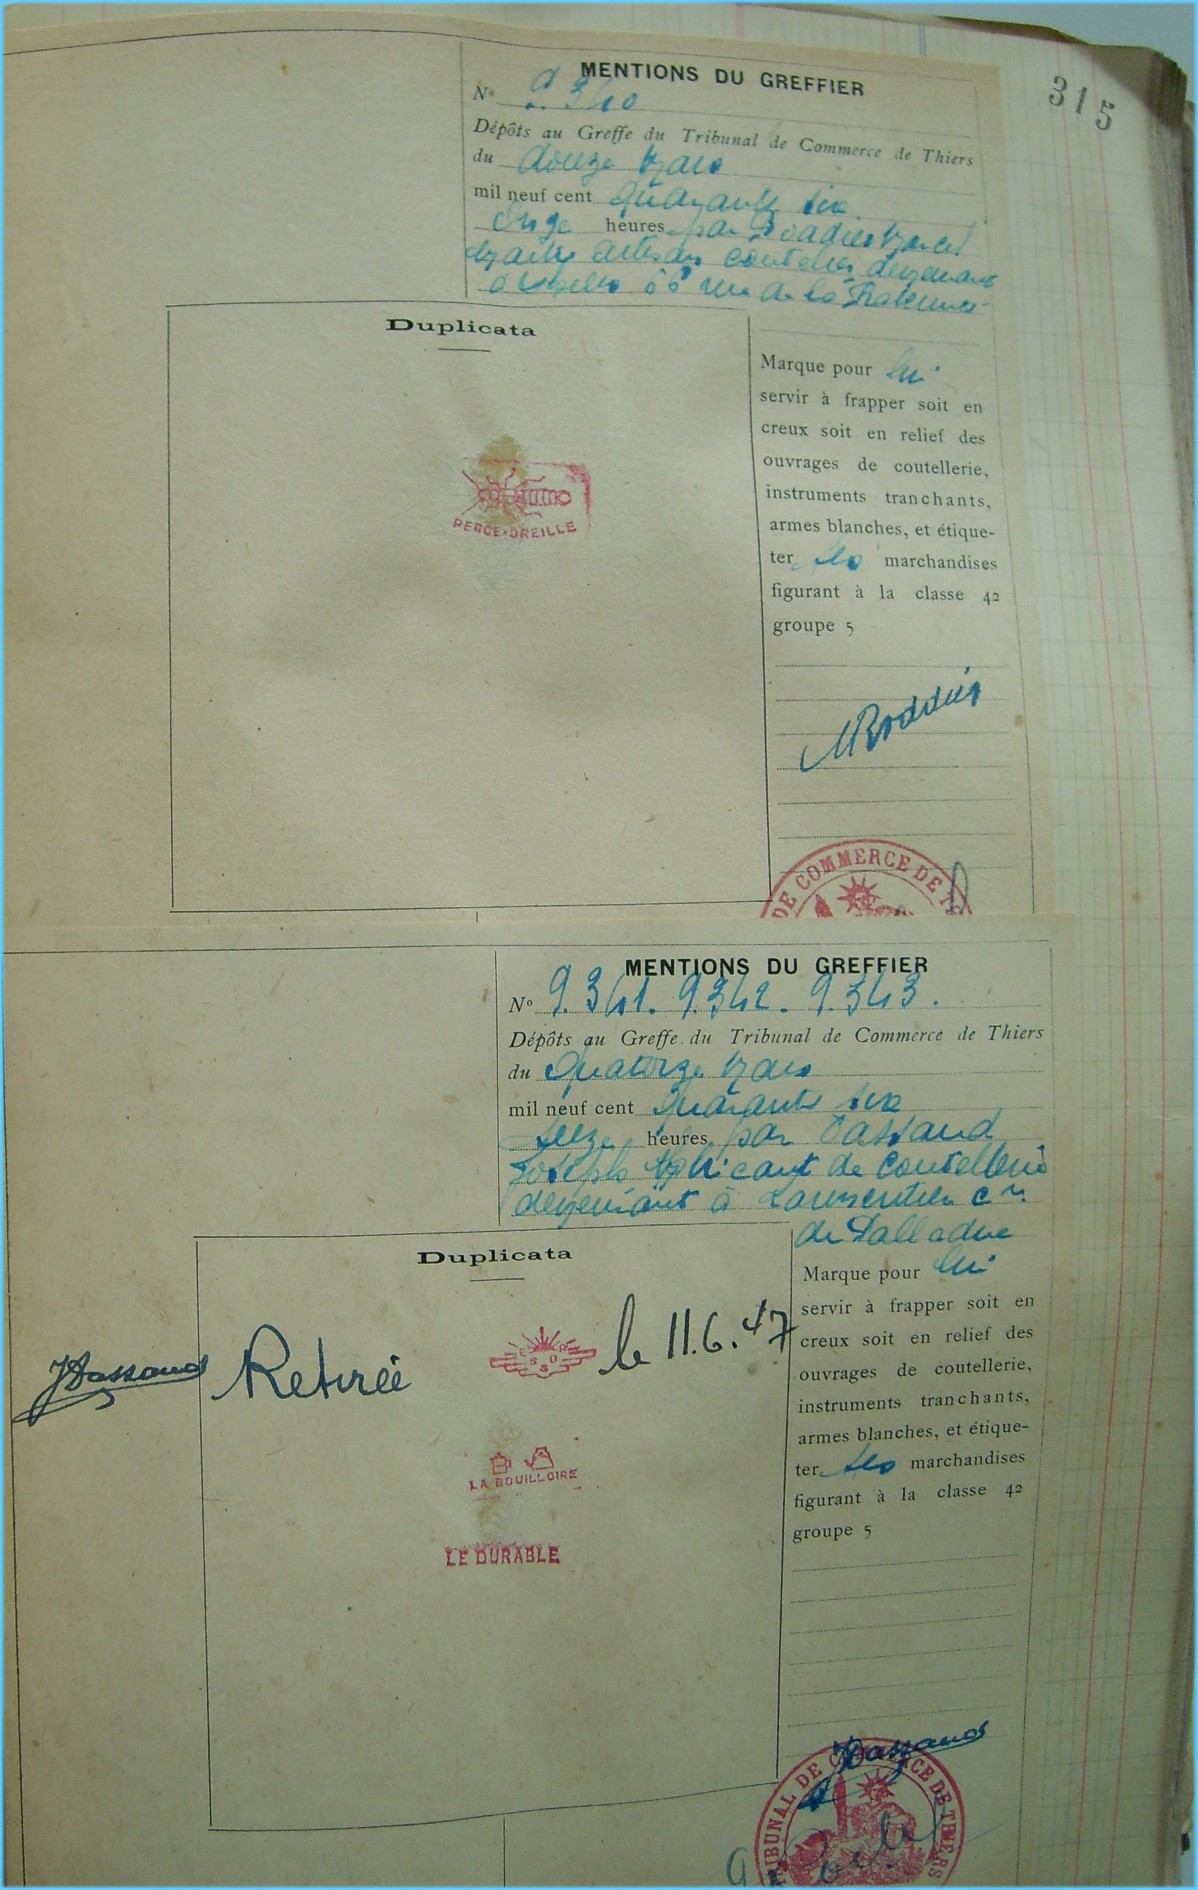 315
MENTIONS DU GREFFIER
N° 9.340
Dépôts au Greffe du Tribunal de Commerce de Thiers
du douze mars
mil neuf cent quarante six
onze heures par
artisan coutelier demeurant
à rue de la Fraternité
Duplicata
PERCE-OREILLE
Marque pour lui
servir à frapper soit en
creux soit en relief des
ouvrages de coutellerie,
instruments tranchants,
armes blanches, et étique-
ter ses marchandises
figurant à la classe 42
groupe 5
MRoddier
DE COMMERCE DE
MENTIONS DU GREFFIER
N° 9.341. 9.342. 9.343.
Dépôts au Greffe du Tribunal de Commerce de Thiers
du quatorze mars
mil neuf cent quarante six
heures par Dassaud
Joseph fabricant de coutellerie
demeurant à cne
de Palladuc
Duplicata
Marque pour lui
servir à frapper soit en
creux soit en relief des
ouvrages de coutellerie,
instruments tranchants,
armes blanches, et étique-
ter ses marchandises
figurant à la classe 42
groupe 5
JDassaud
Retirée le 11.6.47
LA BOUILLOIRE
LE DURABLE
JDassaud
TRIBUNAL DE COMMERCE DE THIERS